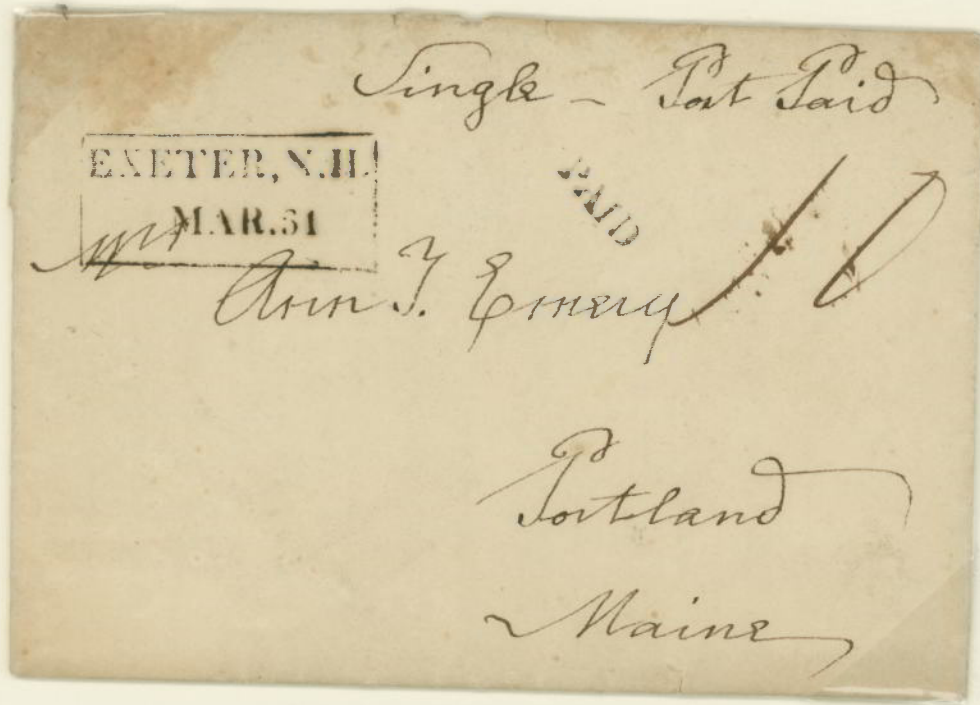 Single – Post Paid
EXETER, N.H.
MAR. 31
PAID
10
Mrs
Ann T. Emery
Portland
Maine